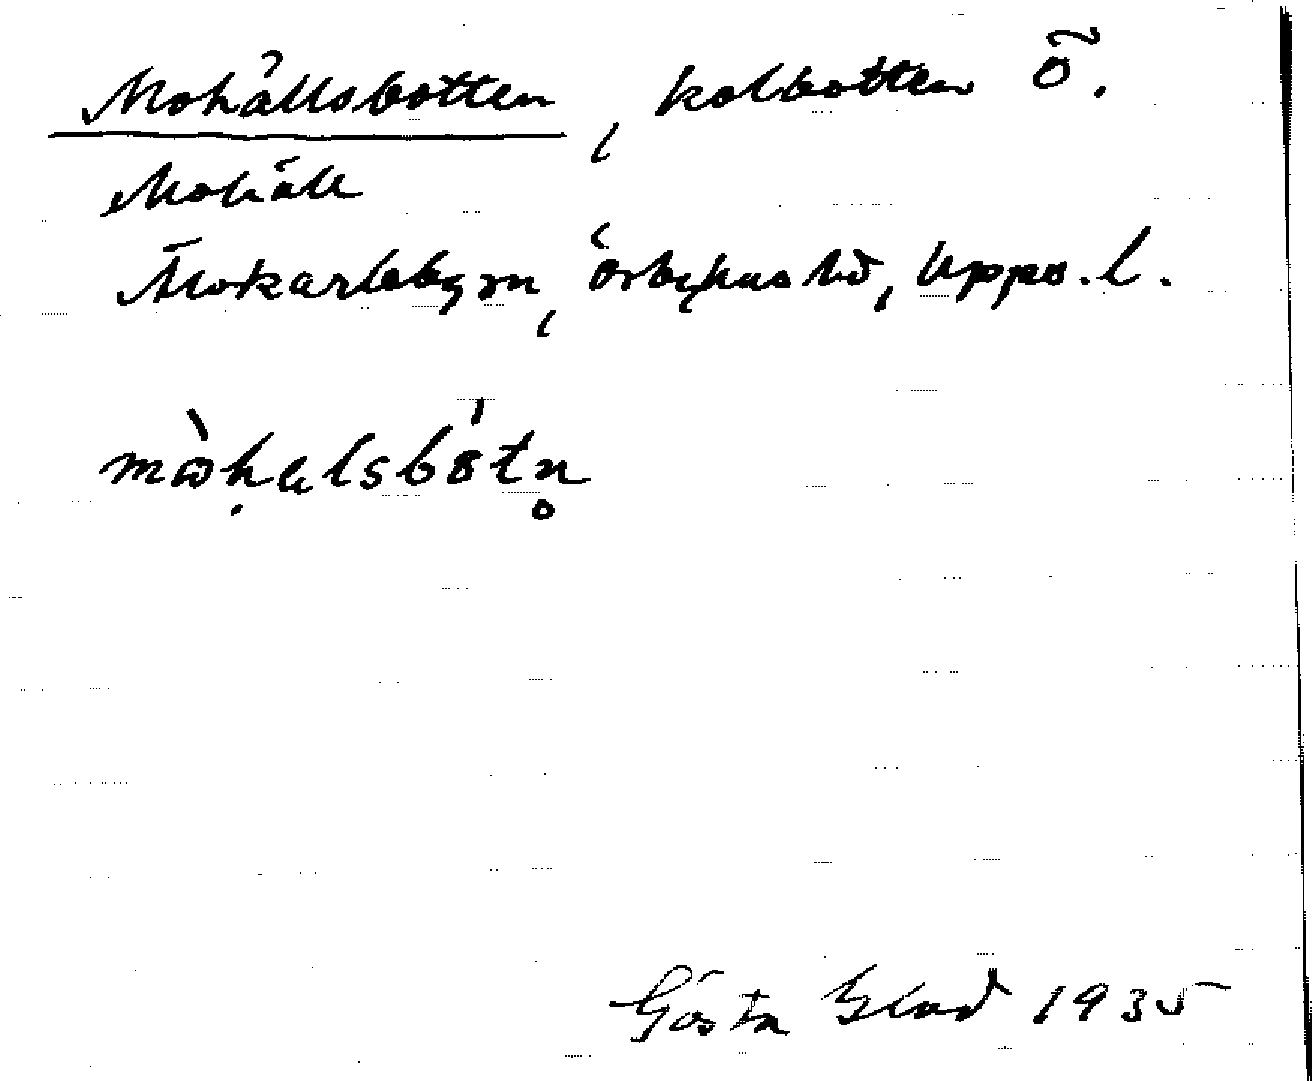 Mohällsbotten, kolbotten Ö.
Mohäll
Älvkarleby sn, Örbyhus hd, Upps. l.
mὼhạlsbòtn̥
Gösta Blad 1935